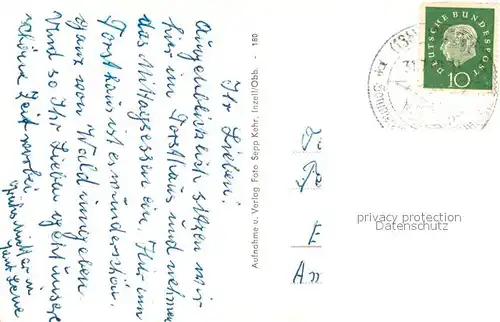 Ihr Lieben!
Augenblicklich sitzen wir
hier im Forsthaus und nehmen
das Mittagessen ein. Hier im
Forsthaus ist es wunderschön.
Ganz von Wald umgeben.
Und so Ihr Lieben geht unsere
schöne Zeit vorbei
Aufnahme u. Verlag Foto Sepp Kehr, Inzell/Obb. - 180
DEUTSCHE BUNDESPOST
10
E
Am
privacy protection
Datenschutz